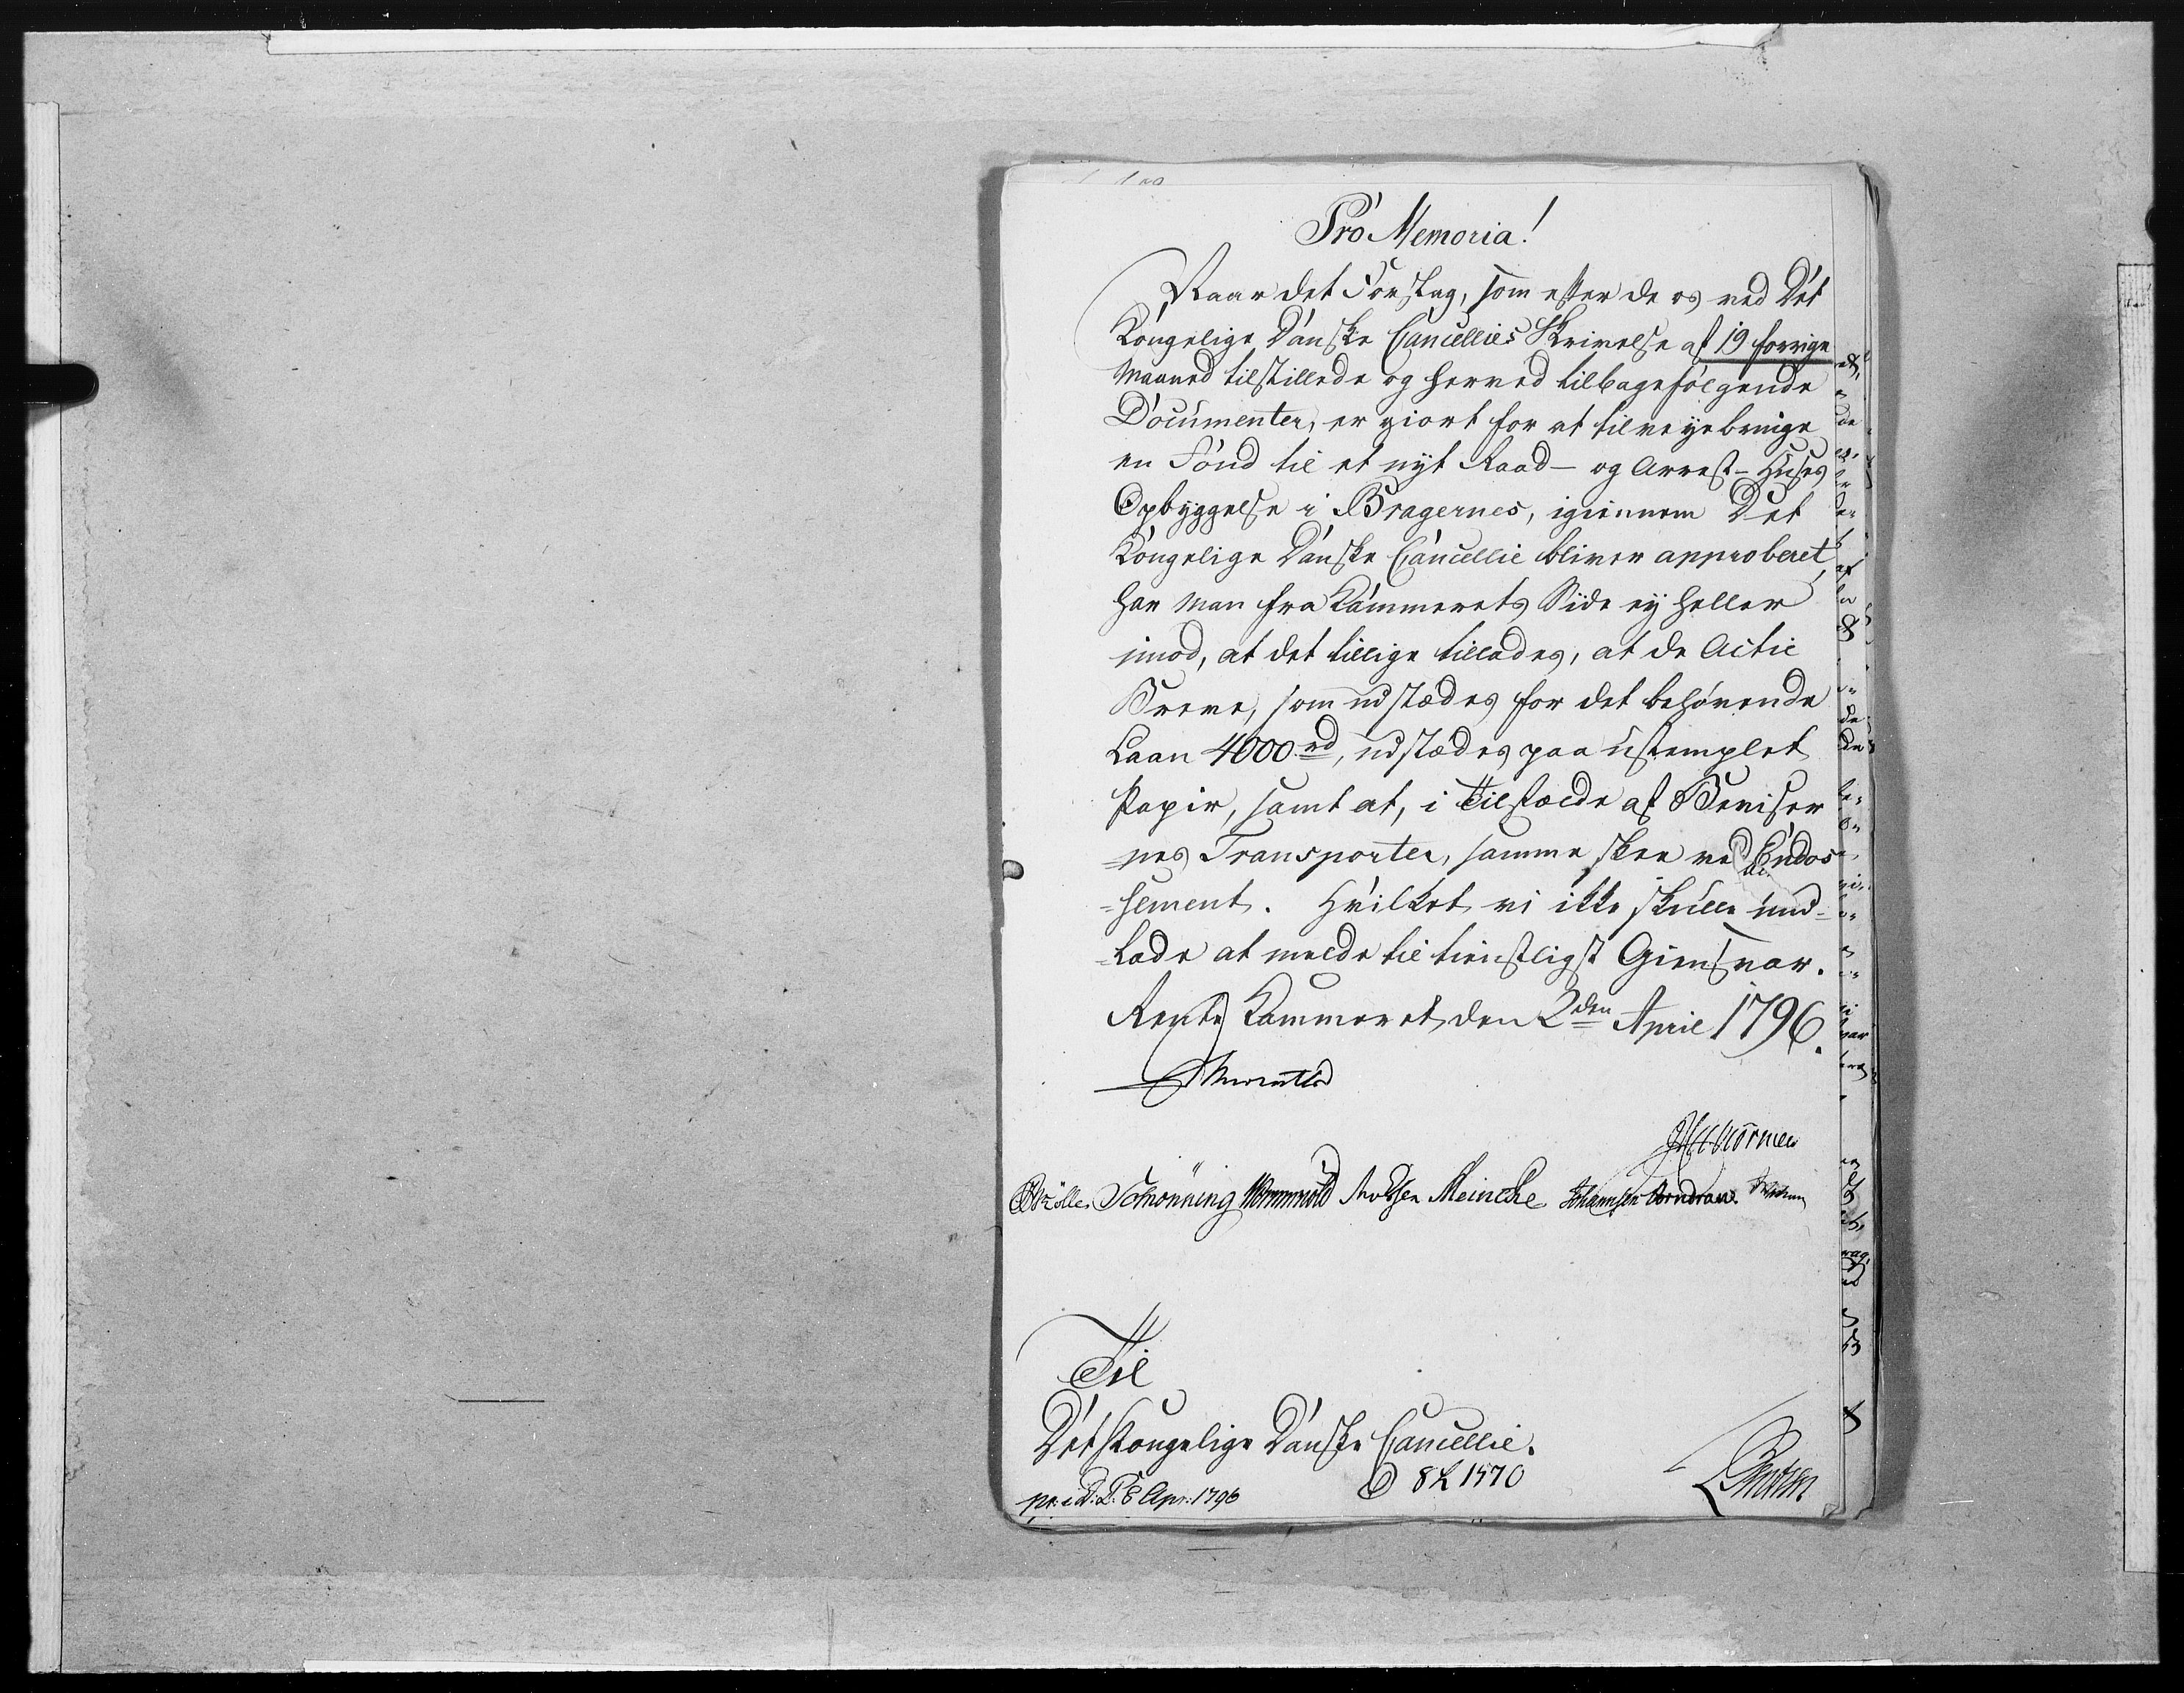 Pro Memoria!
Naar det Forslag, som efter de os ved Det
Kongelige Danske Cancellies Skrivelse af 19 forrige
Maaned tilstillede og herved tilbagefølgende
Documenter, er giort for at tilveyebringe
en Fond til et nyt Raad- og Arrest-Huses
Opbyggelse i Bragernes, igiennem Det
Kongelige Danske Cancellie bliver approberet,
har man fra Kammerets Side ey heller
imod, at det tillige tillades, at de Actie
Breve, som udstædes for det behøvende
Laan 4000 rd, udstædes paa ustemplet
Papir, samt at, i Tilfælde af Beviser
=nes Transporter, samme skee ved Endos
=sement. Hvilket vi ikke skulle und=
=lade at melde til tienstligst Giensvar.
Rente Kammeret, den 2den April 1796.
Schönning Wormskiold Meincke Johannsen
Til
Det Kongelige Danske Cancellie.
pr. i d: D: 8 Apr: 1796